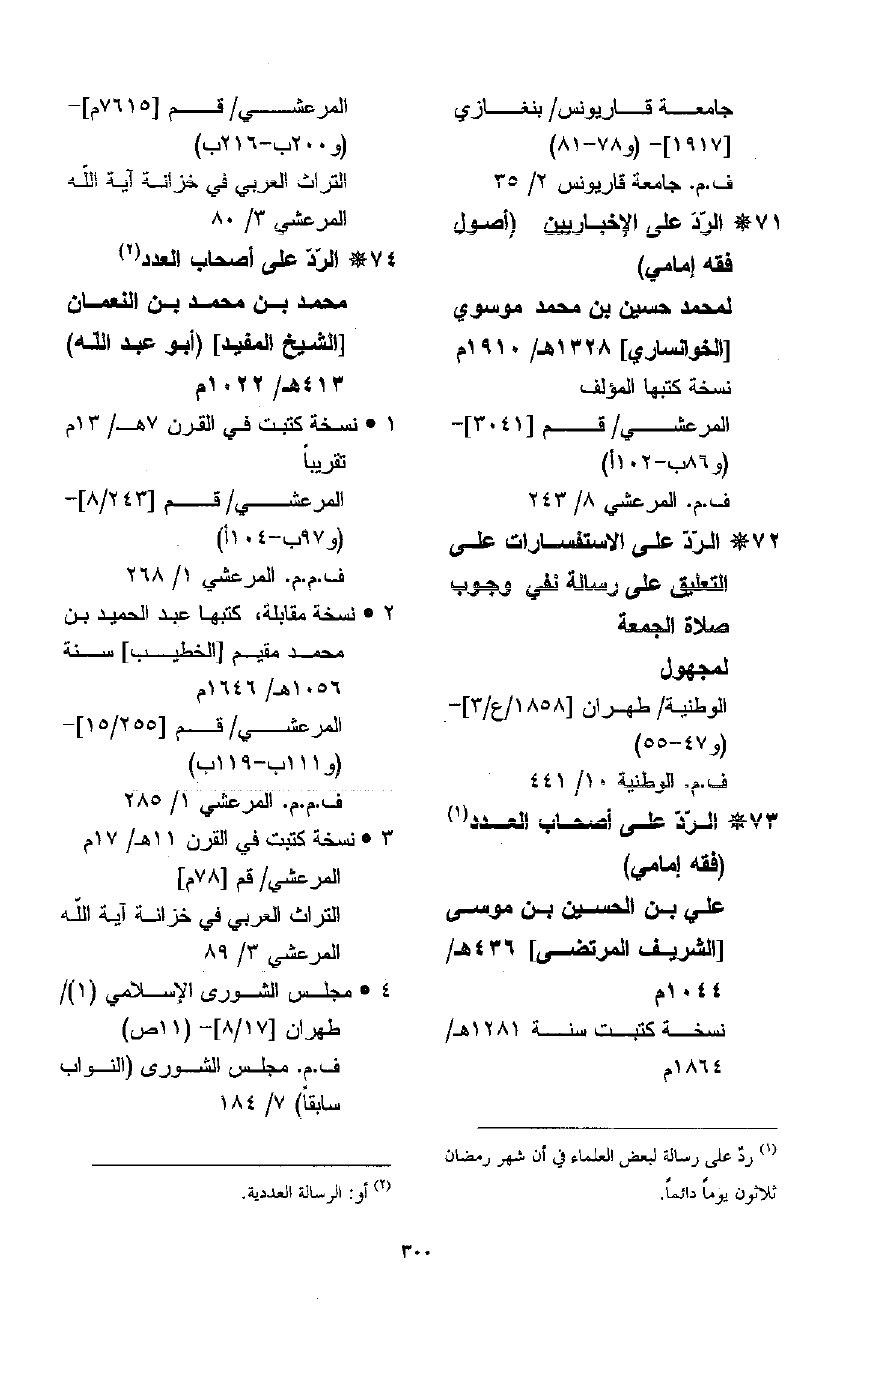 جامعة قاريونس/ بنغازي
[١٩١٧]- (و٧٨-٨١)
ف.م. جامعة قاريونس ٢/ ٣٥
٧١* الردّ على الإخباريين (أصول
فقه إمامي)
لمحمد حسين بن محمد موسوي
[الخوانساري] ١٣٢٨هـ/ ١٩١٠م
نسخة كتبها المؤلف
المرعشي/ قم [٣٠٤١]-
(و٨٦ب-١٠٢أ)
ف.م. المرعشي ٨/ ٢٤٣
٧٢* الردّ على الاستفسارات على
التعليق على رسالة نفي وجوب
صلاة الجمعة
لمجهول
الوطنية/ طهران [١٨٥٨/ع/٣]-
(و٤٧-٥٥)
ف.م. الوطنية ١٠/ ٤٤١
٧٣* الردّ على أصحاب العدد(١)
(فقه إمامي)
علي بن الحسين بن موسى
[الشريف المرتضى] ٤٣٦هـ/
١٠٤٤م
نسخة كتبت سنة ١٢٨١هـ/
١٨٦٤م
(١) ردّ على رسالة لبعض العلماء في أن شهر رمضان
ثلاثون يوماً دائماً.
المرعشي/ قم [٧٦١٥م]-
(و٢٠٠ب-٢١٦ب)
التراث العربي في خزانة آية اللّه
المرعشي ٣/ ٨٠
٧٤* الردّ على أصحاب العدد(٢)
محمد بن محمد بن النعمان
[الشيخ المفيد] (أبو عبد اللّه)
٤١٣هـ/ ١٠٢٢م
١ • نسخة كتبت في القرن ٧هـ/ ١٣م
تقريباً
المرعشي/ قم [٨/٢٤٣]-
(و٩٧ب-١٠٤أ)
ف.م.م. المرعشي ١/ ٢٦٨
٢ • نسخة مقابلة، كتبها عبد الحميد بن
محمد مقيم [الخطيب] سنة
١٠٥٦هـ/ ١٦٤٦م
المرعشي/ قم [١٥/٢٥٥]-
(و١١١ب-١١٩ب)
ف.م.م. المرعشي ١/ ٢٨٥
٣ • نسخة كتبت في القرن ١١هـ/ ١٧م
المرعشي/ قم [٧٨م]
التراث العربي في خزانة آية اللّه
المرعشي ٣/ ٨٩
٤ • مجلس الشورى الإسلامي (١)/
طهران [٨/١٧]- (١١ص)
ف.م. مجلس الشورى (النواب
سابقاً) ٧/ ١٨٤
(٢) أو: الرسالة العددية.
٣٠٠